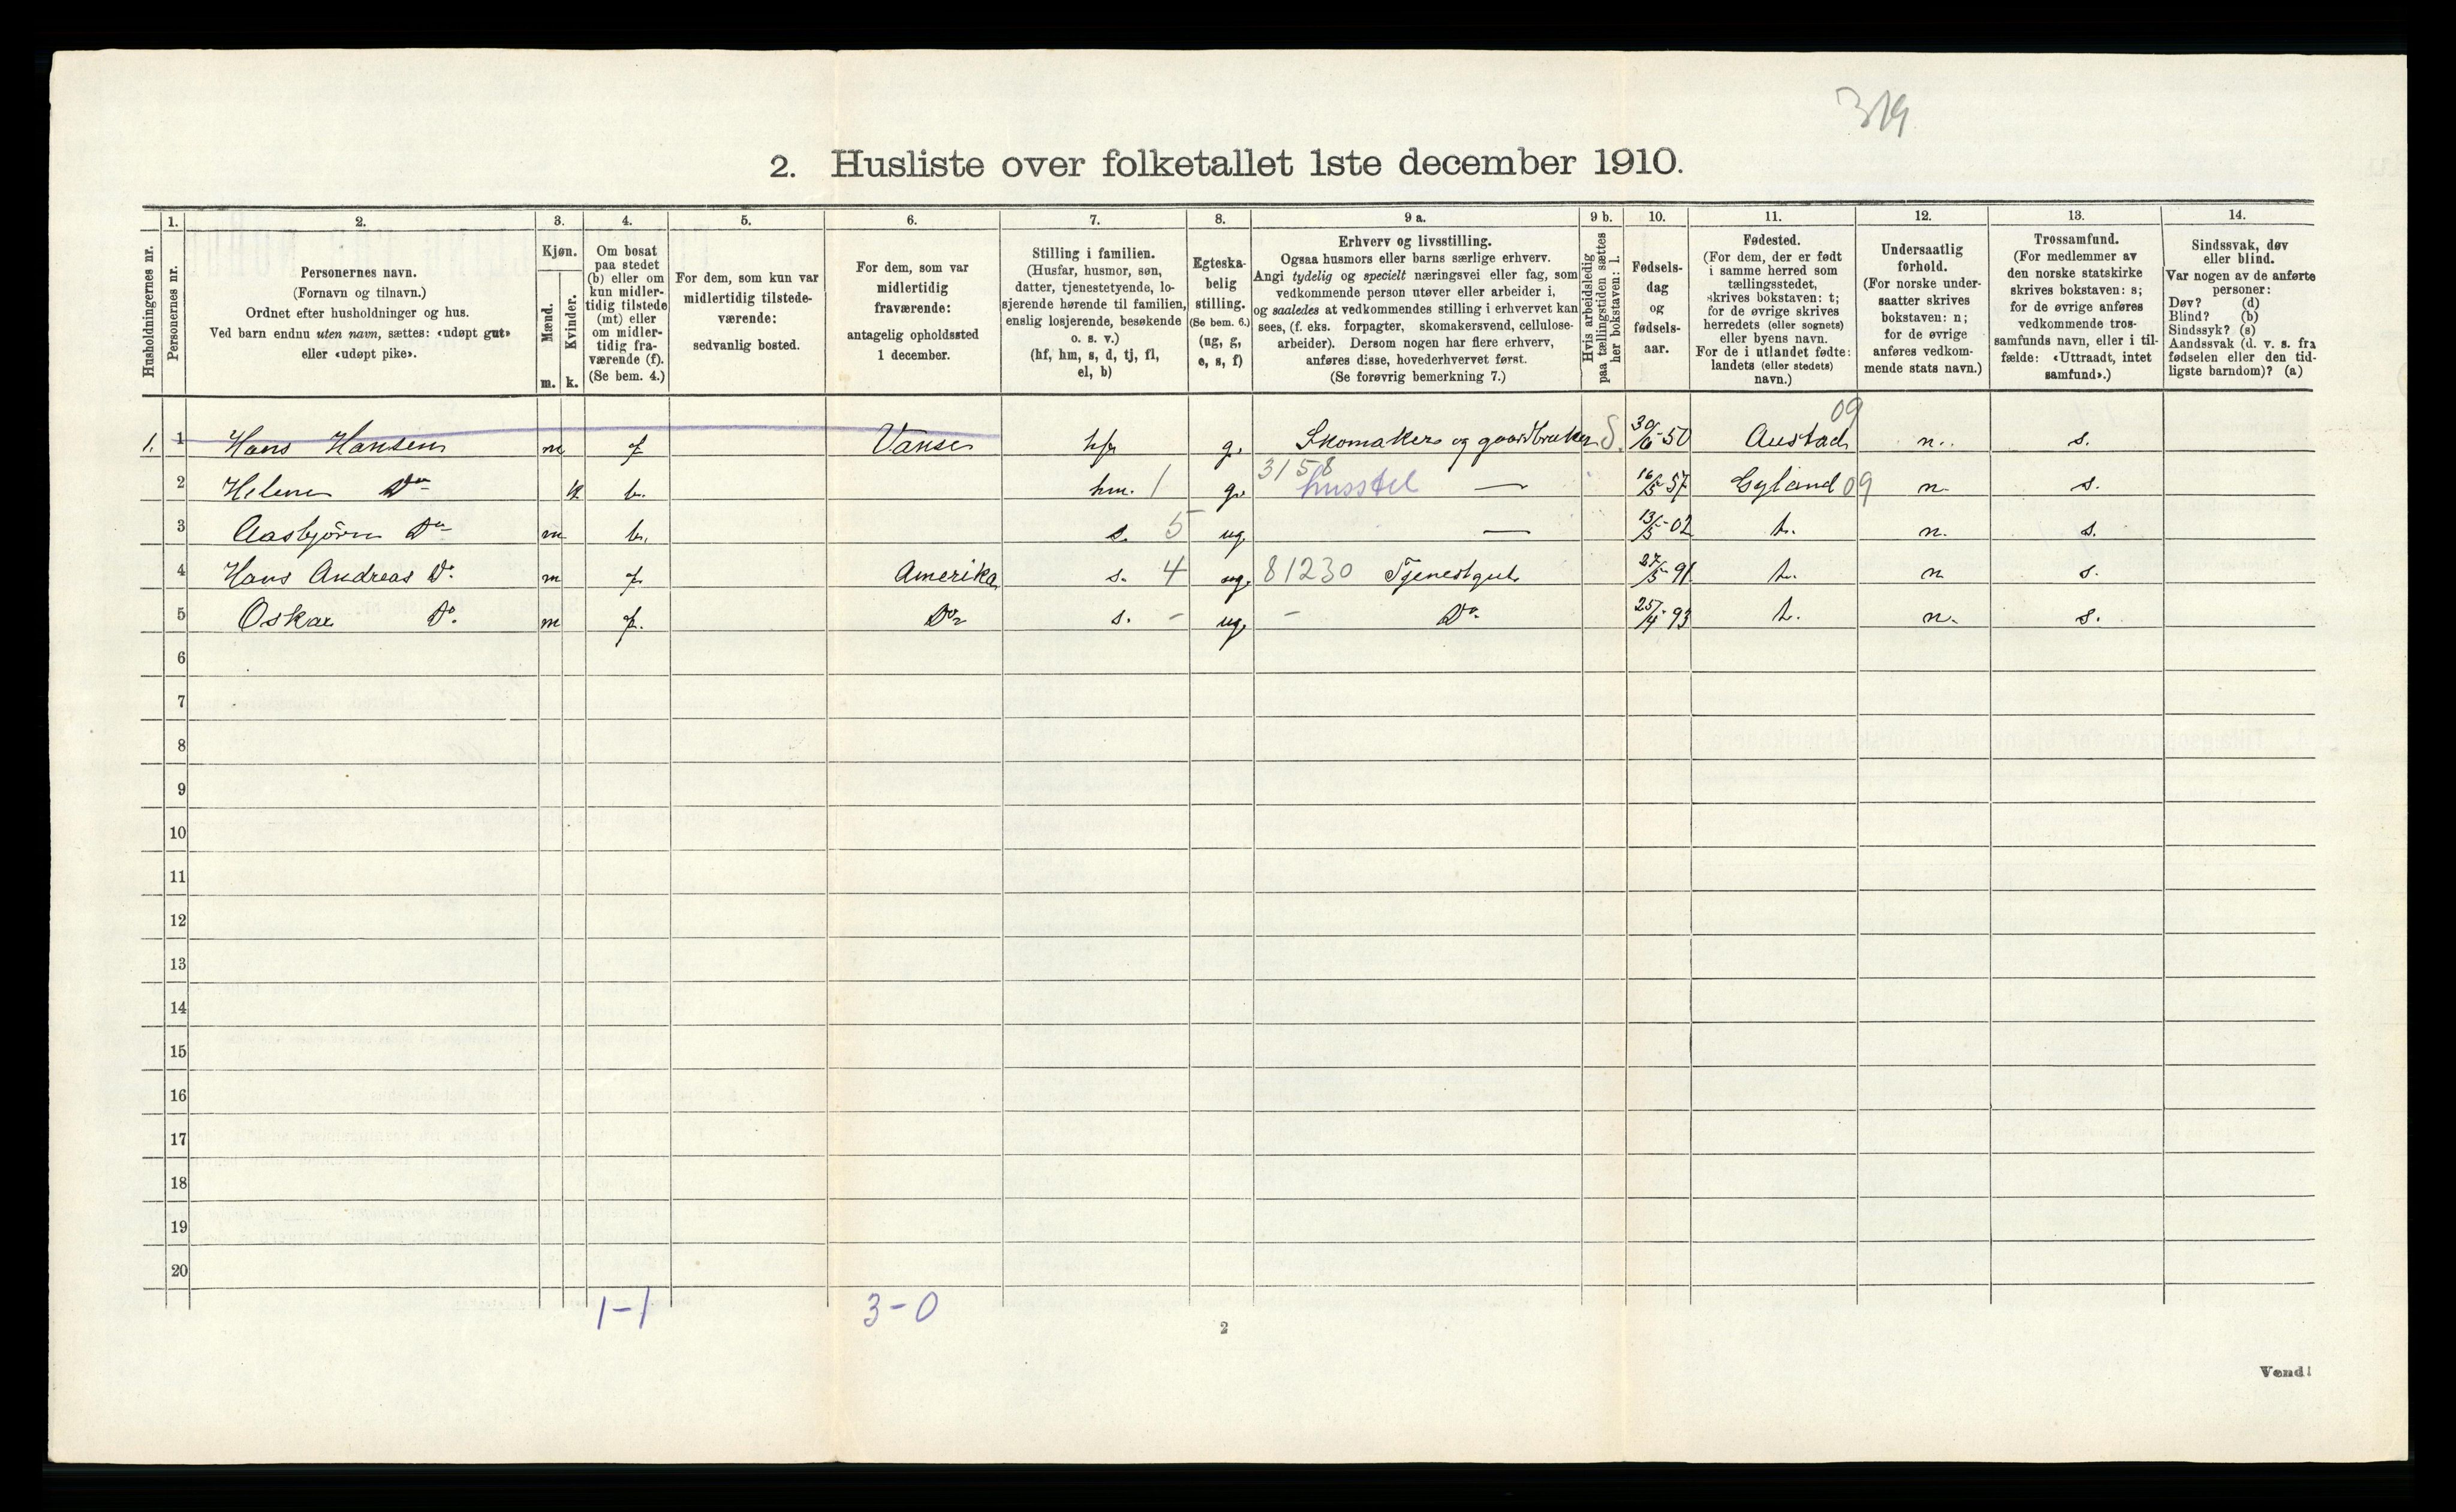 319
2. Husliste over folketallet 1ste december 1910.
Husholdningernes nr.
1.
Personernes nr.
2.
Personernes navn.
(Fornavn og tilnavn.)
Ordnet efter husholdninger og hus.
Ved barn endnu uten navn, sættes: «udøpt gut»
eller «udøpt pike».
3.
Kjøn.
Mænd.
Kvinder.
m. k.
4.
Om bosat
paa stedet
(b) eller om
kun midler-
tidig tilstede
(mt) eller
om midler-
tidig fra-
værende (f).
(Se bem. 4.)
5.
For dem, som kun var
midlertidig tilstede-
værende:
sedvanlig bosted.
6.
For dem, som var
midlertidig
fraværende:
antagelig opholdssted
1 december.
7.
Stilling i familien.
(Husfar, husmor, søn,
datter, tjenestetyende, lo-
sjerende hørende til familien,
enslig losjerende, besøkende
o. s. v.)
(hf, hm, s, d, tj, fl,
el, b)
8.
Egteska-
belig
stilling.
(Se bem. 6.)
(ug, g,
e, s, f)
9 a.
Erhverv og livsstilling.
Ogsaa husmors eller barns særlige erhverv.
Angi tydelig og specielt næringsvei eller fag, som
vedkommende person utøver eller arbeider i,
og saaledes at vedkommendes stilling i erhvervet kan
sees, (f. eks. forpagter, skomakersvend, cellulose-
arbeider). Dersom nogen har flere erhverv,
anføres disse, hovederhvervet først.
(Se forøvrig bemerkning 7.)
9 b.
Hvis arbeidsledig
paa tællingstiden sættes
her bokstaven: l.
10.
Fødsels-
dag
og
fødsels-
aar.
11.
Fødested.
(For dem, der er født
i samme herred som
tællingsstedet,
skrives bokstaven: t;
for de øvrige skrives
herredets (eller sognets)
eller byens navn.
For de i utlandet fødte:
landets (eller stedets)
navn.)
12.
Undersaatlig
forhold.
(For norske under-
saatter skrives
bokstaven: n;
for de øvrige
anføres vedkom-
mende stats navn.)
13.
Trossamfund.
(For medlemmer av
den norske statskirke
skrives bokstaven: s;
for de øvrige anføres
vedkommende tros-
samfunds navn, eller i til-
fælde: «Uttraadt, intet
samfund».)
14.
Sindssvak, døv
eller blind.
Var nogen av de anførte
personer:
Døv? (d)
Blind? (b)
Sindssyk? (s)
Aandssvak (d. v. s. fra
fødselen eller den tid-
ligste barndom)? (a)
09
1. 1 Hans Hansen m f Vanse hf g. Skomaker og gaardbruker S. 30/6-50 Austad n. s.
3158
2 Helene Do k b. hm. 1 g. husstel — 16/5-57 Gyland 09 n. s.
3 Aasbjörn Do m b. s. 5 ug. — 13/5-02 t. n. s.
4 Hans Andreas Do. m f. Amerika s. 4 ug. 81230 Tjenestgut 27/5-91 t. n s.
5 Oskar Do. m f. Do s. - ug. - Do. 25/4-93 t. n. s.
6
7
8
9
10
11
12
13
14
15
16
17
18
19
20
1-1 3-0
2
Vend!